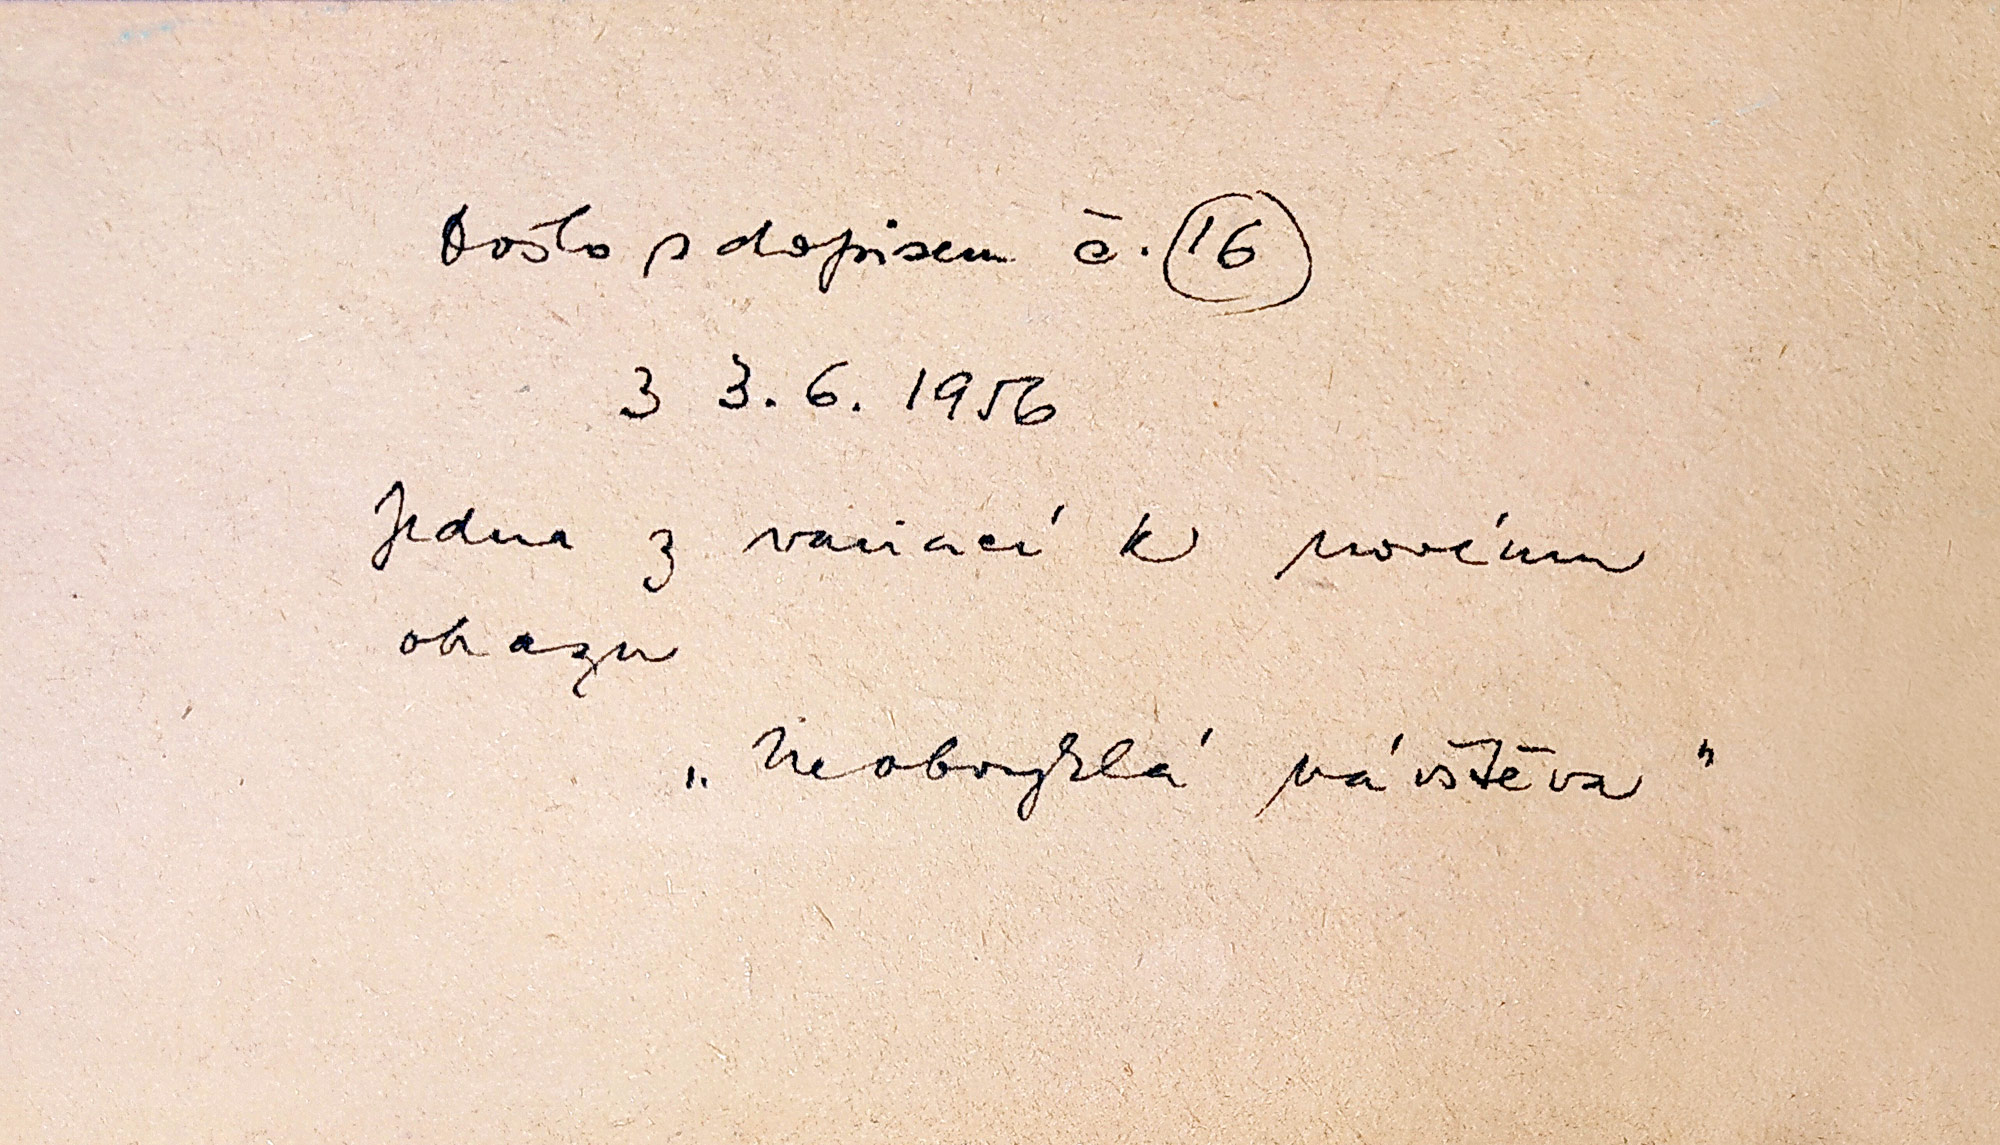 Došlo s dopisem č. 16
z 3. 6. 1956
Jedna z variací k novému
obrazu
„Neobvyklá návštěva"